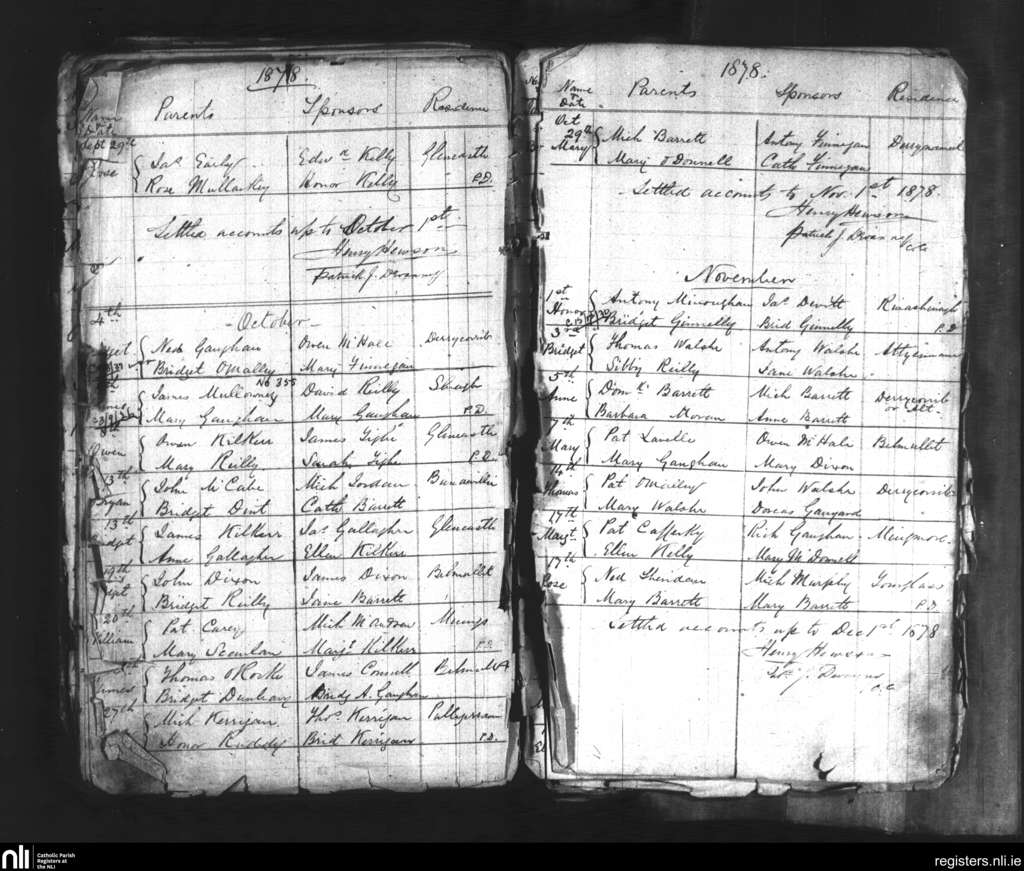 1878.
Name & Date Parents Sponsors Residence
Sept 29th
Rose Jas. Early Edwd Kelly Glencastle
Rose Mullarkey Honor Kelly P.D.
Settled accounts up to October 1st
Henry Hewson
Patrick J.
4th
October
Ned Gaughan Owen McHale Derrycorrib
Bridget OMalley Mary Finnegan
No 355
James Mullowney David Reilly
Mary Gaughan Mary Gaughan P.D.
8th
Owen Owen Kilker James Tighe Glencastle
Mary Reilly Sarah Tighe P.D.
13th John McCabe Mich Jordan
Bryan Bridget Cath Barrett
13th James Kilker Jas. Gallagher Glencastle
Bridget Anne Gallagher Ellen Kilker
John Dixon James Dixon Belmullet
Bridget Reilly Jane Barrett
20th Pat Carey Mich Muings
William Mary Scanlon Margt Kilker P.D.
Thomas ORorke James Connell Belmullet
James Bridget Dunleavy Bridg A. Gaughan
27th
Mich Kerrigan Thos. Kerrigan
Honor Ruddy Brid Kerrigan P.D.
1878.
Name & Date Parents Sponsors Residence
Oct
29th Mich Barrett Antony Finnegan
Mary Mary O'Donnell Cath Finnegan
Settled accounts to Nov. 1st 1878.
Henry Hewson
Patrick J.
November
1st Antony Minoughan Jas. Devitt
Honor Bridget Ginnelly Brid Ginnelly P.D.
3rd Thomas Walshe Antony Walshe
Bridget Sibby Reilly Jane Walshe
5th Domk Barrett Mich Barrett Derrycorrib
Anne Barbara Moran Anne Barrett
7th Pat Lavelle Owen McHale Belmullet
Mary Mary Gaughan Mary Dixon
14th Pat John Walshe Derrycorrib
Thomas Mary Walshe Dorcas
17th Pat Cafferky Rich Gaughan Muingmore.
Margt Ellen Kelly Mary McDonnell
17th Ned Sheridan Mich Murphy Tonglass
Rose Mary Barrett Mary Barrett P.D.
Settled accounts up to Dec 1st 1878
Henry Hewson
C.C.
nli Catholic Parish
Registers at
the NLI
registers.nli.ie